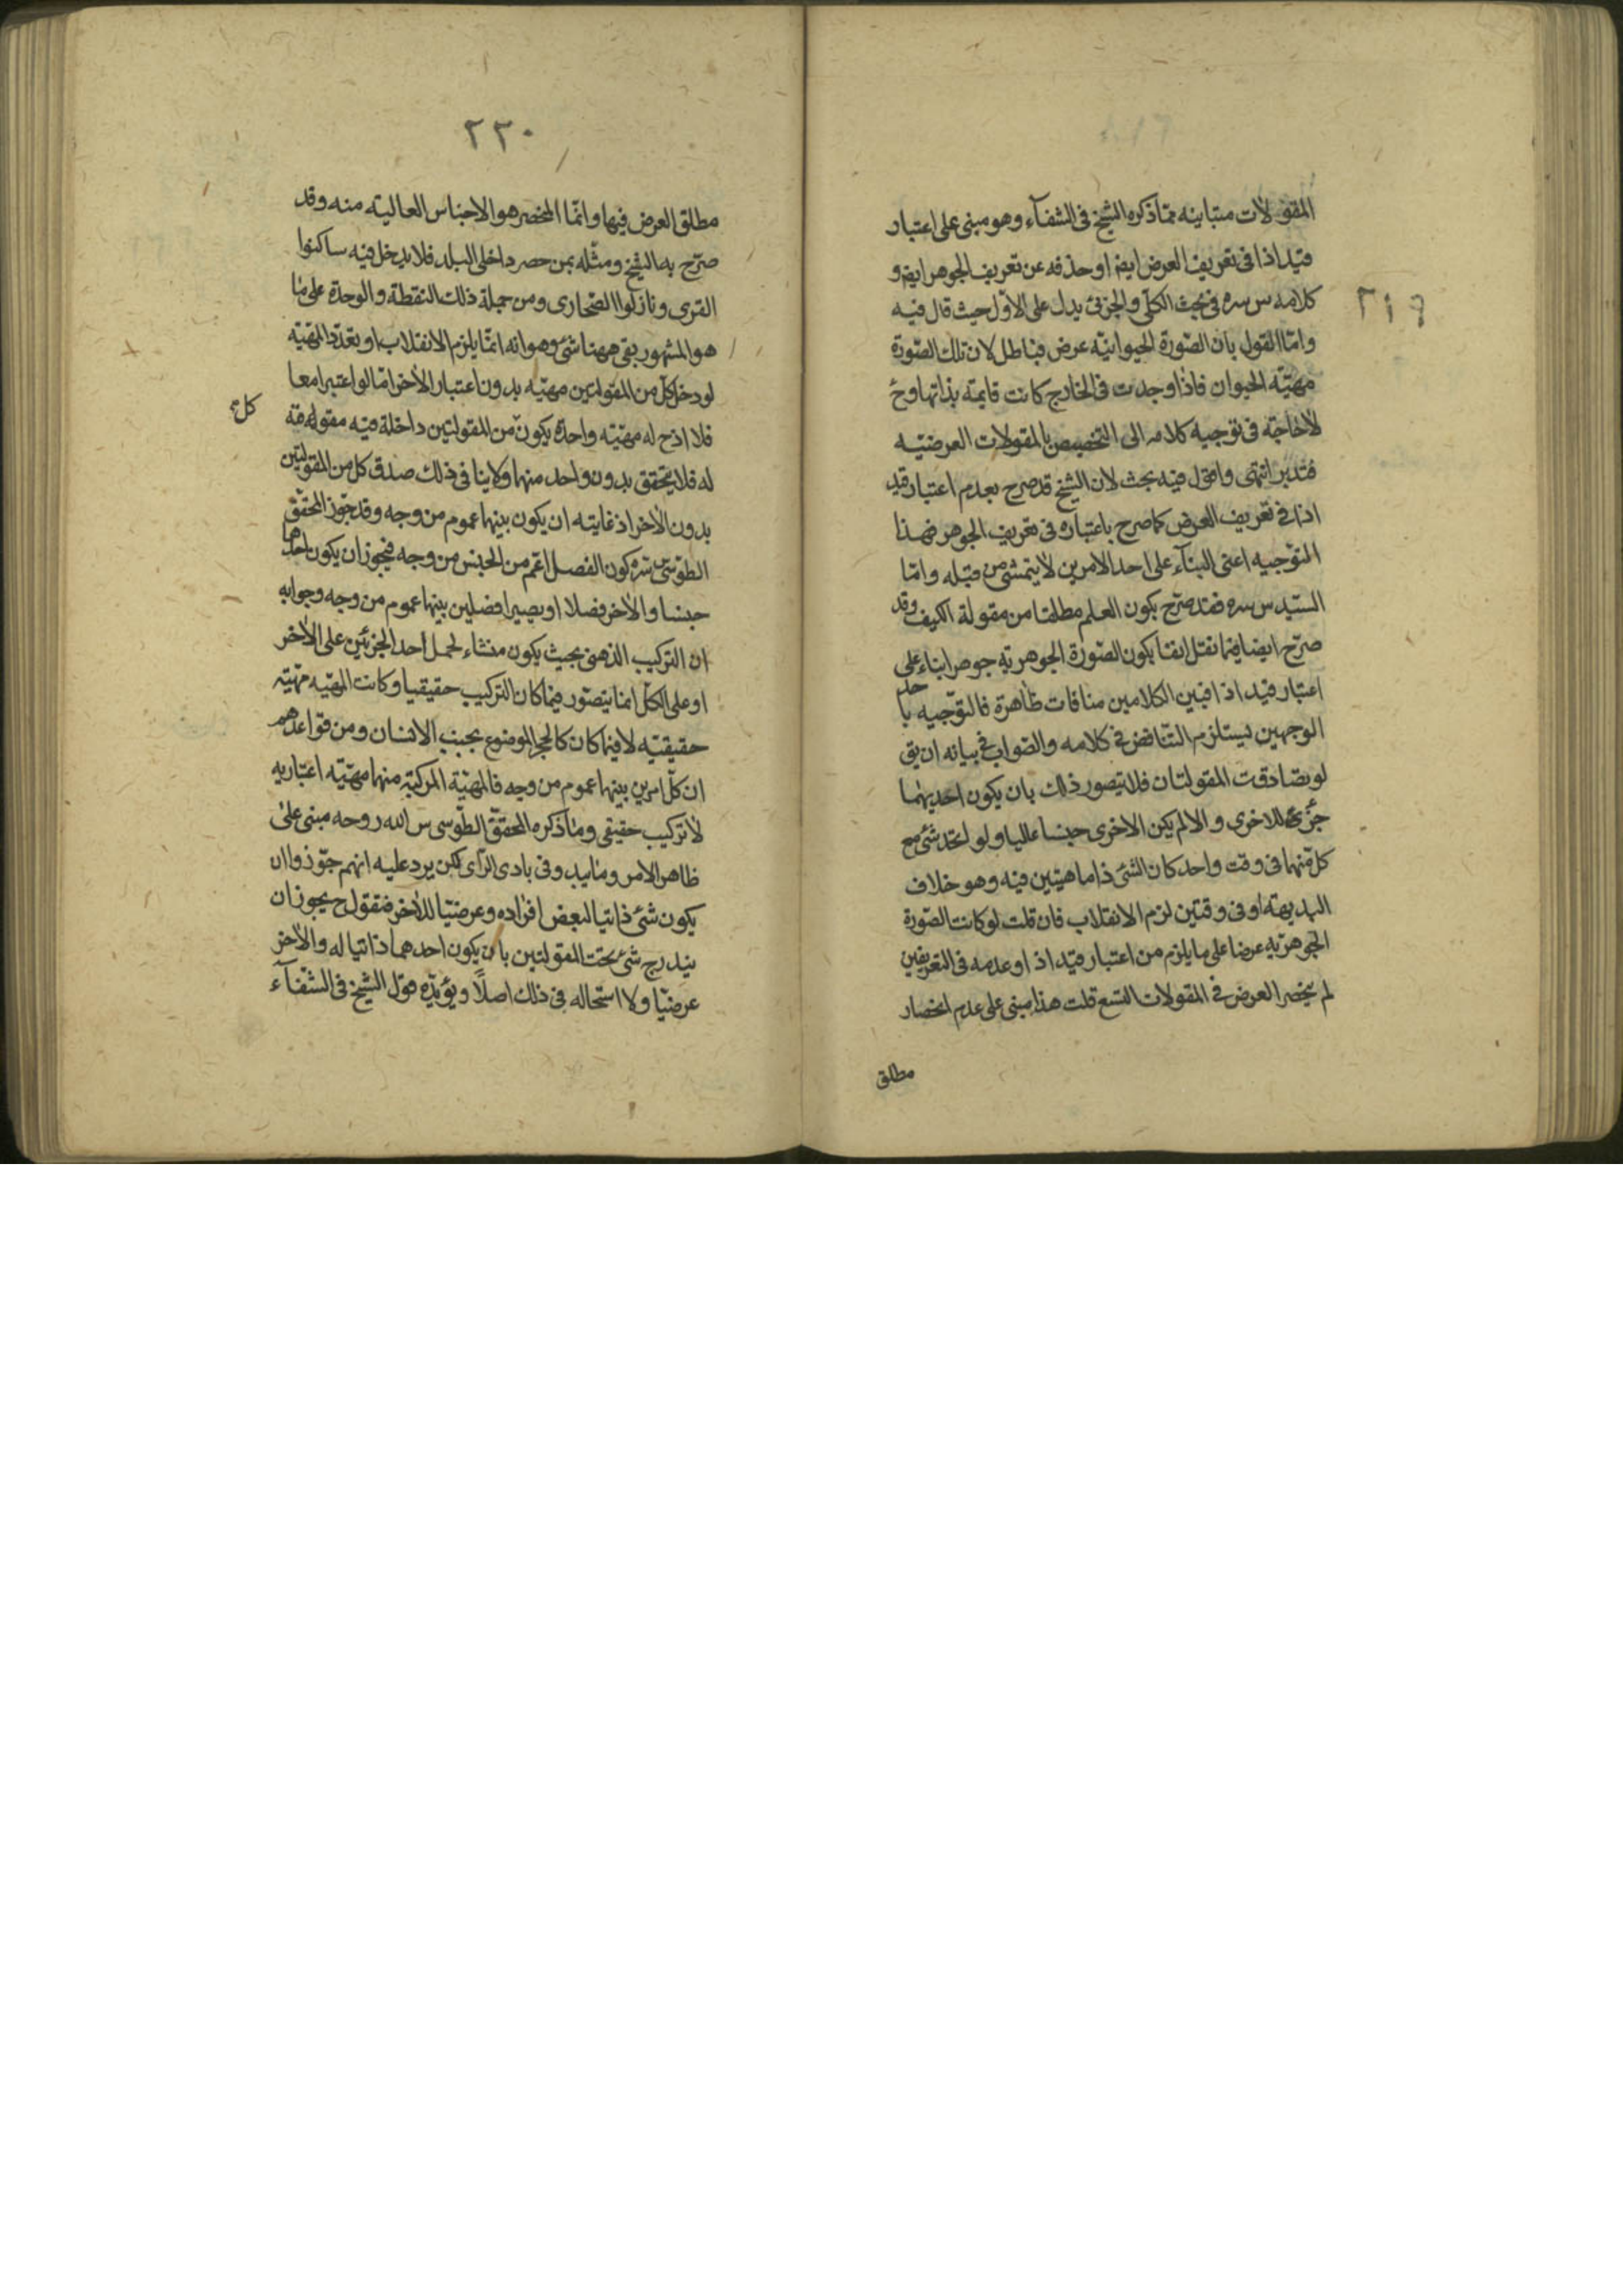 ٢١٩
المقولات متباينه مما ذكره الشيخ فى الشفآء وهو مبنى على اعتبار
قيد اذا فى تعريف العرض ايضا او حذفه عن تعريف الجوهر ايضا و
كلامه س سره فى بحث الكلّى والجزئى يدل على الاوّل حيث قال فيه
وامّا القول بان الصّورة الحيوانيّه عرض فباطل لان تلك الصّورة
مهيّه الحيوان فاذا وجدت فى الخارج كانت قايمة بذاتها وح
لاحاجة فى توجيه كلامه الى التخصيص بالمقولات العرضيّه
فتدبر انتهى واقول فيه بحث لان الشيخ قد صرح بعدم اعتبار قيد
اذا فى تعريف العرض كما صرح باعتباره فى تعريف الجوهر فهذا
التوجيه اعنى البنآء على احد الامرين لايتمشى من قبله وامّا
السّيد س سره فقد صرّح بكون العلم مطلقا من مقولة الكيف وقد
صرّح ايضا فيما نقل انفا بكون الصّورة الجوهريه جوهرا بناء على
اعتبار قيد اذا فبين الكلامين منافات ظاهرة فالتوجيه باحد
الوجهين يستلزم التناقض فى كلامه والصّواب فى بيانه ان يق
لو تصادقت المقولتان فلا يتصور ذلك بان يكون احديهما
جزء للاخرى والا لم يكن الاخرى جنسا عاليا ولو اتحد شئ مع
كل منهما فى وقت واحد كان الشئ ذا ماهيتين فيه وهو خلاف
البديهة او فى وقتين لزم الانقلاب فان قلت لو كانت الصّورة
الجوهريه عرضا على ما يلزم من اعتبار قيد اذا وعدمه فى التعريفين
لم ينحصر العرض فى المقولات التسع قلت هذا مبنى على عدم انحصار
مطلق
٢٢٠
مطلق العرض فيها وانّما المنحصر هو الاجناس العاليه منه وقد
صرّح به الشيخ ومثّله بمن حصر داخلى البلد فلا يدخل فيه ساكنوا
القرى ونازلوا الصّحارى ومن جملة ذلك النقطة والوحدة على ما
هو المشهور بقى ههنا شئ وهو انه انّما يلزم الانقلاب او تعدّد المهيّه
لو دخل كل من المقولتين مهيّه بدون اعتبار الاخر امّا لو اعتبرا معا
فلا اذ ح له مهيّته واحدة يكون من المقولتين داخلة فيه مقولة مقومة
كل
له فلا يتحقق بدون واحد منهما ولا ينافى ذلك صدق كل من المقولتين
بدون الاخر اذ غايته ان يكون بينهما عموم من وجه وقد جوّز المحقّق
الطوسى سره كون الفصل اعّم من الجنس من وجه فيجوز ان يكون احدهما
جنسا والاخر فصلا او يصيرا فصلين بينهما عموم من وجه وجوابه
ان التركيب الذهنى بحيث يكون منشاء لحمل احد الجزئين على الاخر
او على الكل انما يتصّور فيما كان التركيب حقيقيا وكانت المهيّه مهيّته
حقيقيّه لا فيما كان كالحجر الموضوع بجنب الانسان ومن قواعدهم
ان كلّ امرين بينهما عموم من وجه فالمهيّة المركبة منهما مهيّته اعتباريه
لا تركيب حقيقى وما ذكره المحقّق الطّوسى س الله روحه مبنى على
ظاهر الامر وما يبدو فى بادى الرّاى لكن يرد عليه انهم جوّزوا ان
يكون شئ ذاتيا لبعض افراده وعرضيّا للاخر فنقول ح يجوز ان
يندرج شئ تحت المقولتين بان يكون احدهما ذاتيا له والاخر
عرضيّا ولا استحاله فى ذلك اصلاً ويؤيّده قول الشيخ فى الشّفآء